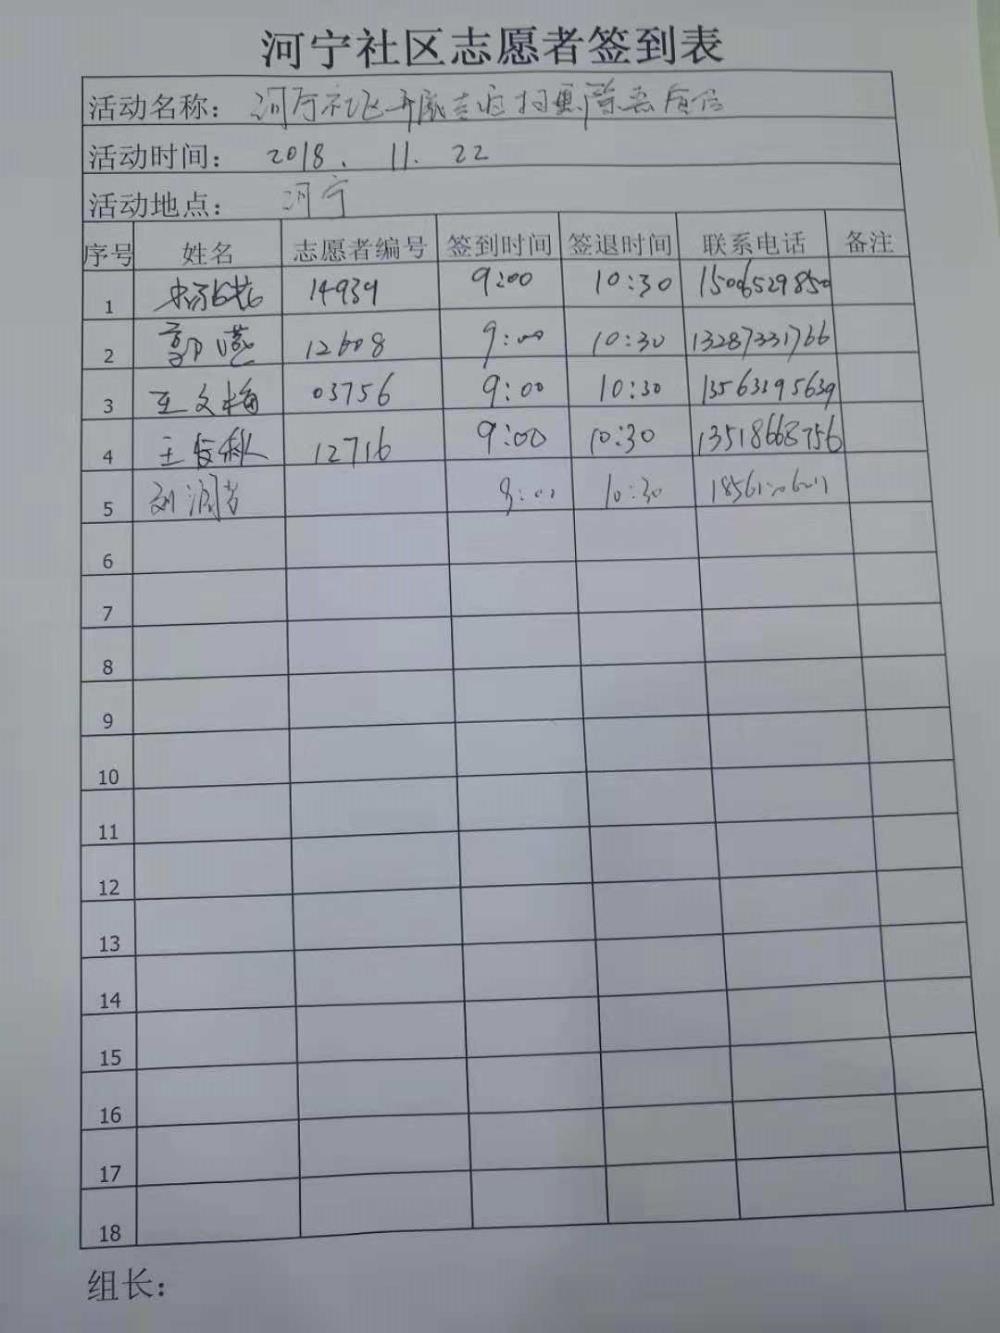 河宁社区志愿者签到表
活动名称： 河宁社区开展志愿扫黑除恶宣传
活动时间： 2018. 11. 22
活动地点： 河宁
序号 姓名 志愿者编号 签到时间 签退时间 联系电话 备注
1 14939 9:00 10:30 15006529850
2 郭燕 12608 9:00 10:30 13287331766
3 王文梅 03756 9:00 10:30 13563395639
4 王 12716 9:00 10:30 13518668756
5 刘润芳 9:00 10:30
6
7
8
9
10
11
12
13
14
15
16
17
18
组长：